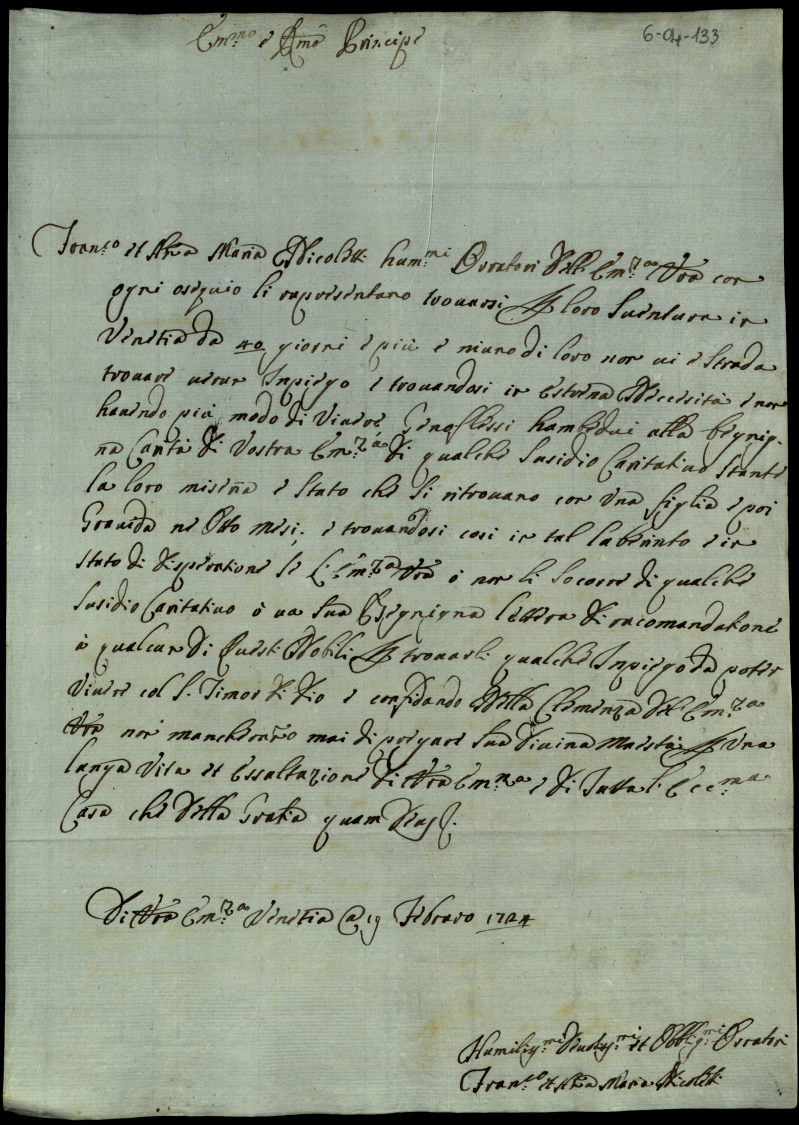 Em.mo e Rmo Principe
6-04-133
Fran.co et Anna Maria Nicoletti hum.mi Oratori dell Em.za Vra con
ogni osequio li rapresentano trouarsi per loro Suentura in
Venetia da 40 giorni e più e niuno di loro non ui è Strada
trouare uerun Inpiego e trouandosi in estrema Necesità e non
hauendo più modo di Viuere Genoflessi hambedui alla begnig-
na Carità di Vostra Em.za di qualche Susidio Caritatiuo Stante
la loro miseria e Stato che Si ritrouano con Una figlia e poi
Grauida ne Otto mesi, e trouandosi cosi in tal laberinto e in
Stato di disperatione Se l'Em.za Vra ò non li Socore di qualche
Susidio Caritatiuo ò ua Sua Begnigna lettera di racomandatione
à qualcun di Questi Nobili per trouarli qualche Inpiego da poter
Viuere col S. Timor di Dio e confidando Nella Clemenza del Em.za
Vra non mancheranno mai di pregare Sua Diuina Maestà per Una
longa Vita et Essaltazione di Vra Em.za e di Tutta l'Ecc.ma
Casa che della Gratia quam Deus.
Di Vra Em.za Venetia @ 19 Febraro 1724
Humiliss.mi Deuotiss.mi et Obblig.mi Oratori
Fran.co et Anna Maria Nicoletti